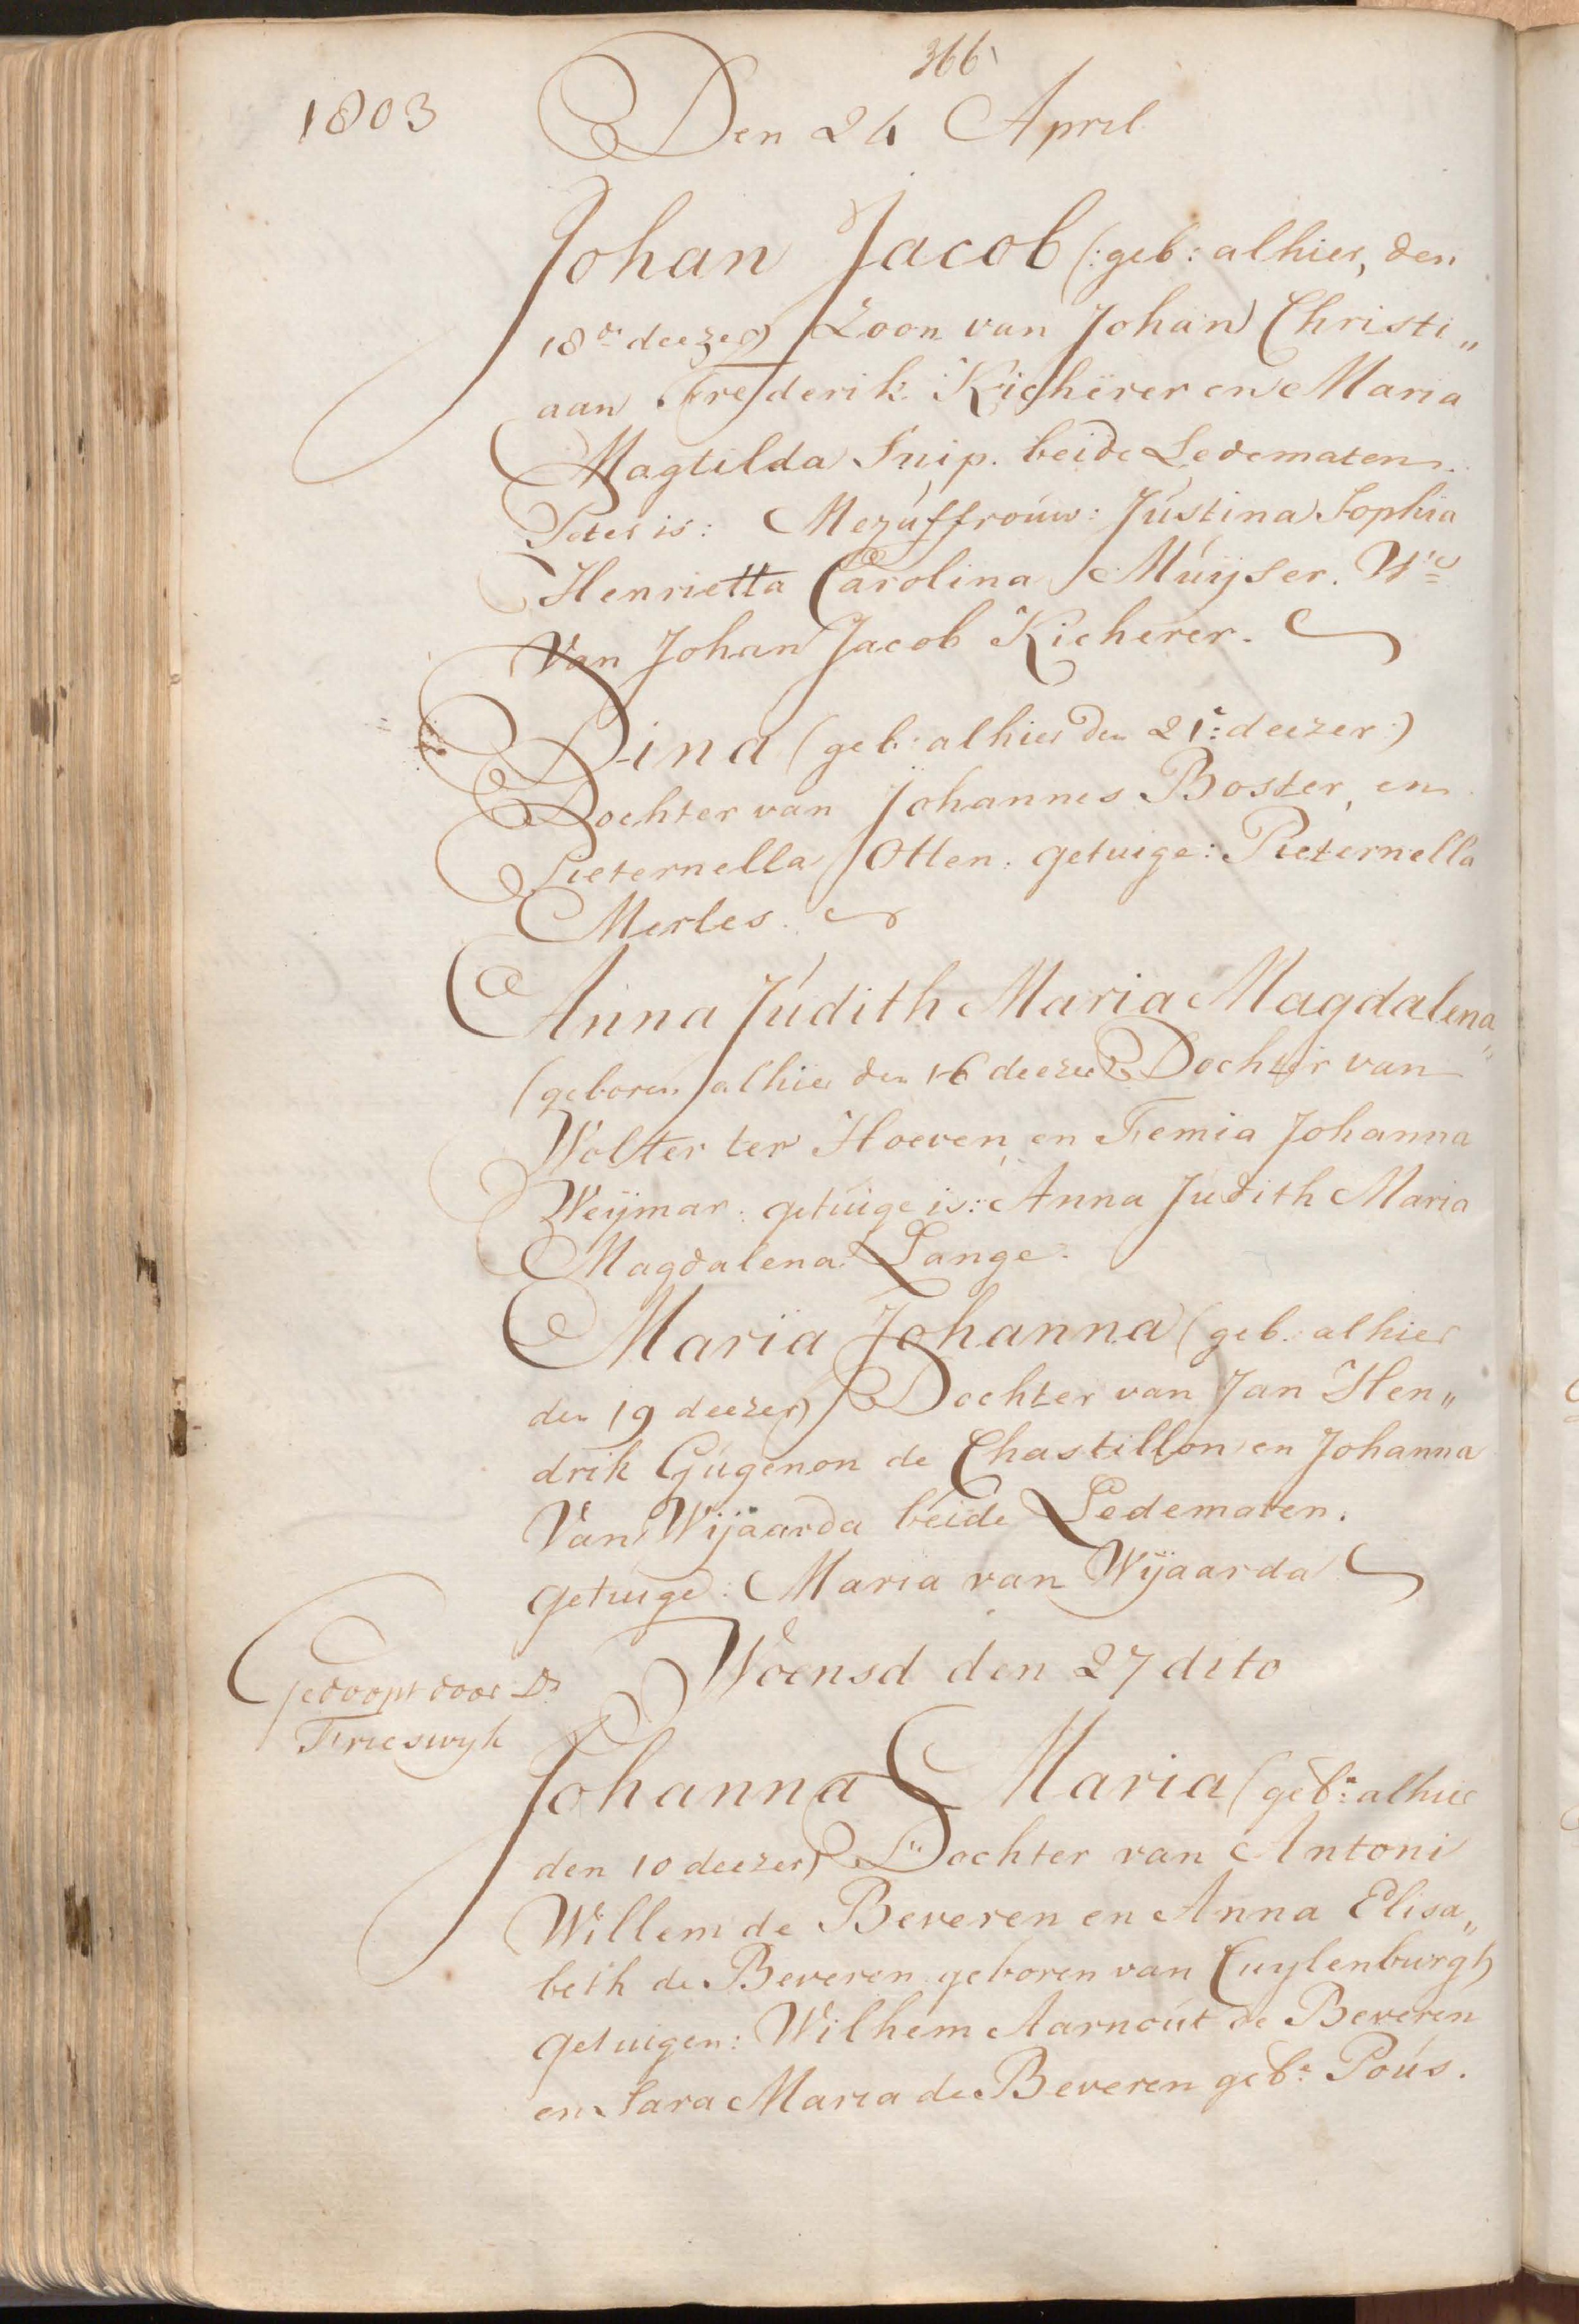 366
1803
Den 24 April
Johan Jacob (:geb: alhier, den
18de deezer) Zoon van Johan Christi„
aan Frederik Kicherer en Maria
Magtilda Snip. beide Ledematen.
Peter is: Mejuffrouw: Justina Sophia
Henrietta Carolina Muijser. We
Van Johan Jacob Kicherer.
Dina (geb: alhier den 21e: deezer:)
Dochter van Johannes Boster, en
Pieternella Otten. getuige: Pieternella
Merles.
Anna Judith Maria Magdalena„
(geboren alhier den 16 deezer) Dochter van
Wolter ter Hoeven, en Femia Johanna
Weijmar: getuige is: Anna Judith Maria
Magdalena Lange.
Maria Johanna (geb: alhier
den 19 deezer) Dochter van Jan Hen„
drik Gugenon de Chastillon en Johanna
Van Wijaarda beide Ledematen.
getuige: Maria van Wijaarda
Woensd den 27 dito
Gedoopt door Ds
Frieswyk
Johanna Maria (gebn: alhier
den 10 deezer) Dochter van Antoni
Willem de Beveren en Anna Elisa„
beth de Beveren geboren van Cuylenburgh
getuigen: Wilhem Aarnout de Beveren
en Sara Maria de Beveren geb: Pous.